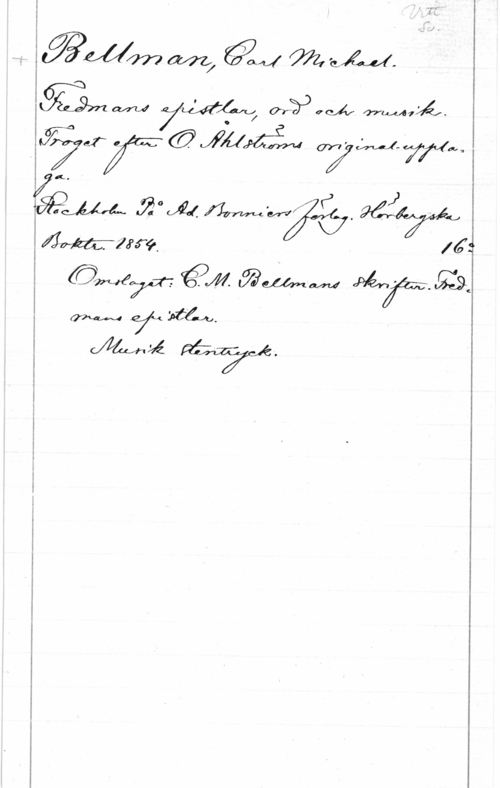 Vitt.
Sv.
+ Bellman, Carl Michael.
Fredmans epistlar, ord och musik.
Troget efter O. Åhlströms original-uppla-
ga.
Stockholm På Ad. Bonniers förlag. Hörbergska
Boktr. 1854. 16°
Omslaget: C. M. Bellmans skrifter. Fred-
mans epistlar.
Musik stentryck.